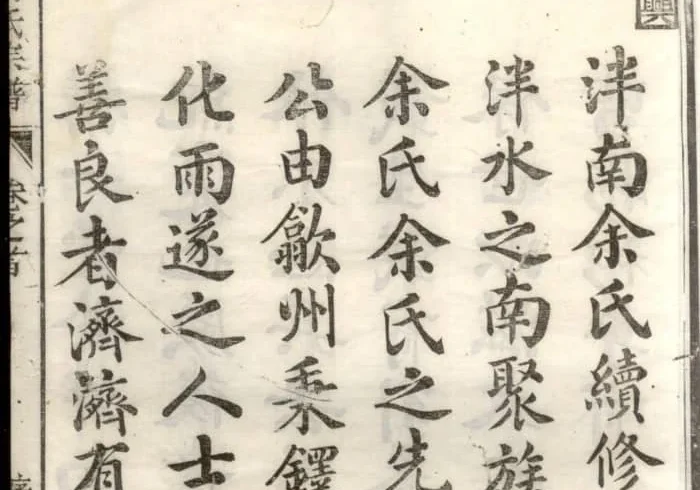 泮南余氏續修
泮水之南聚族
余氏余氏之先
公由歙州秉鐸
化雨遂之人士
善良者濟濟有
氏宗譜 卷之首